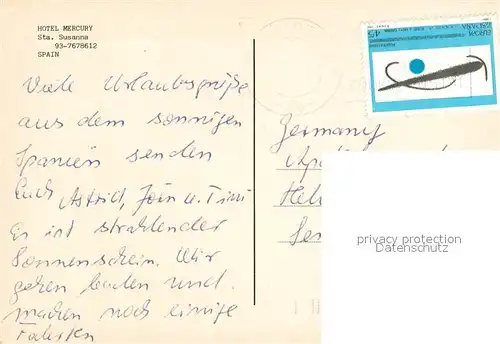 HOTEL MERCURY
Sta. Susanna
93-7678612
SPAIN
Viele Urlaubsgrüße
aus dem sonnigen
Spanien senden
Euch Astrid, Jörn u. Timi
Es ist strahlender
Sonnenschein. Wir
gehen baden und
machen noch einige
Fahrten
45
ESPAÑA
EUROPA
Germany
privacy protection
Datenschutz